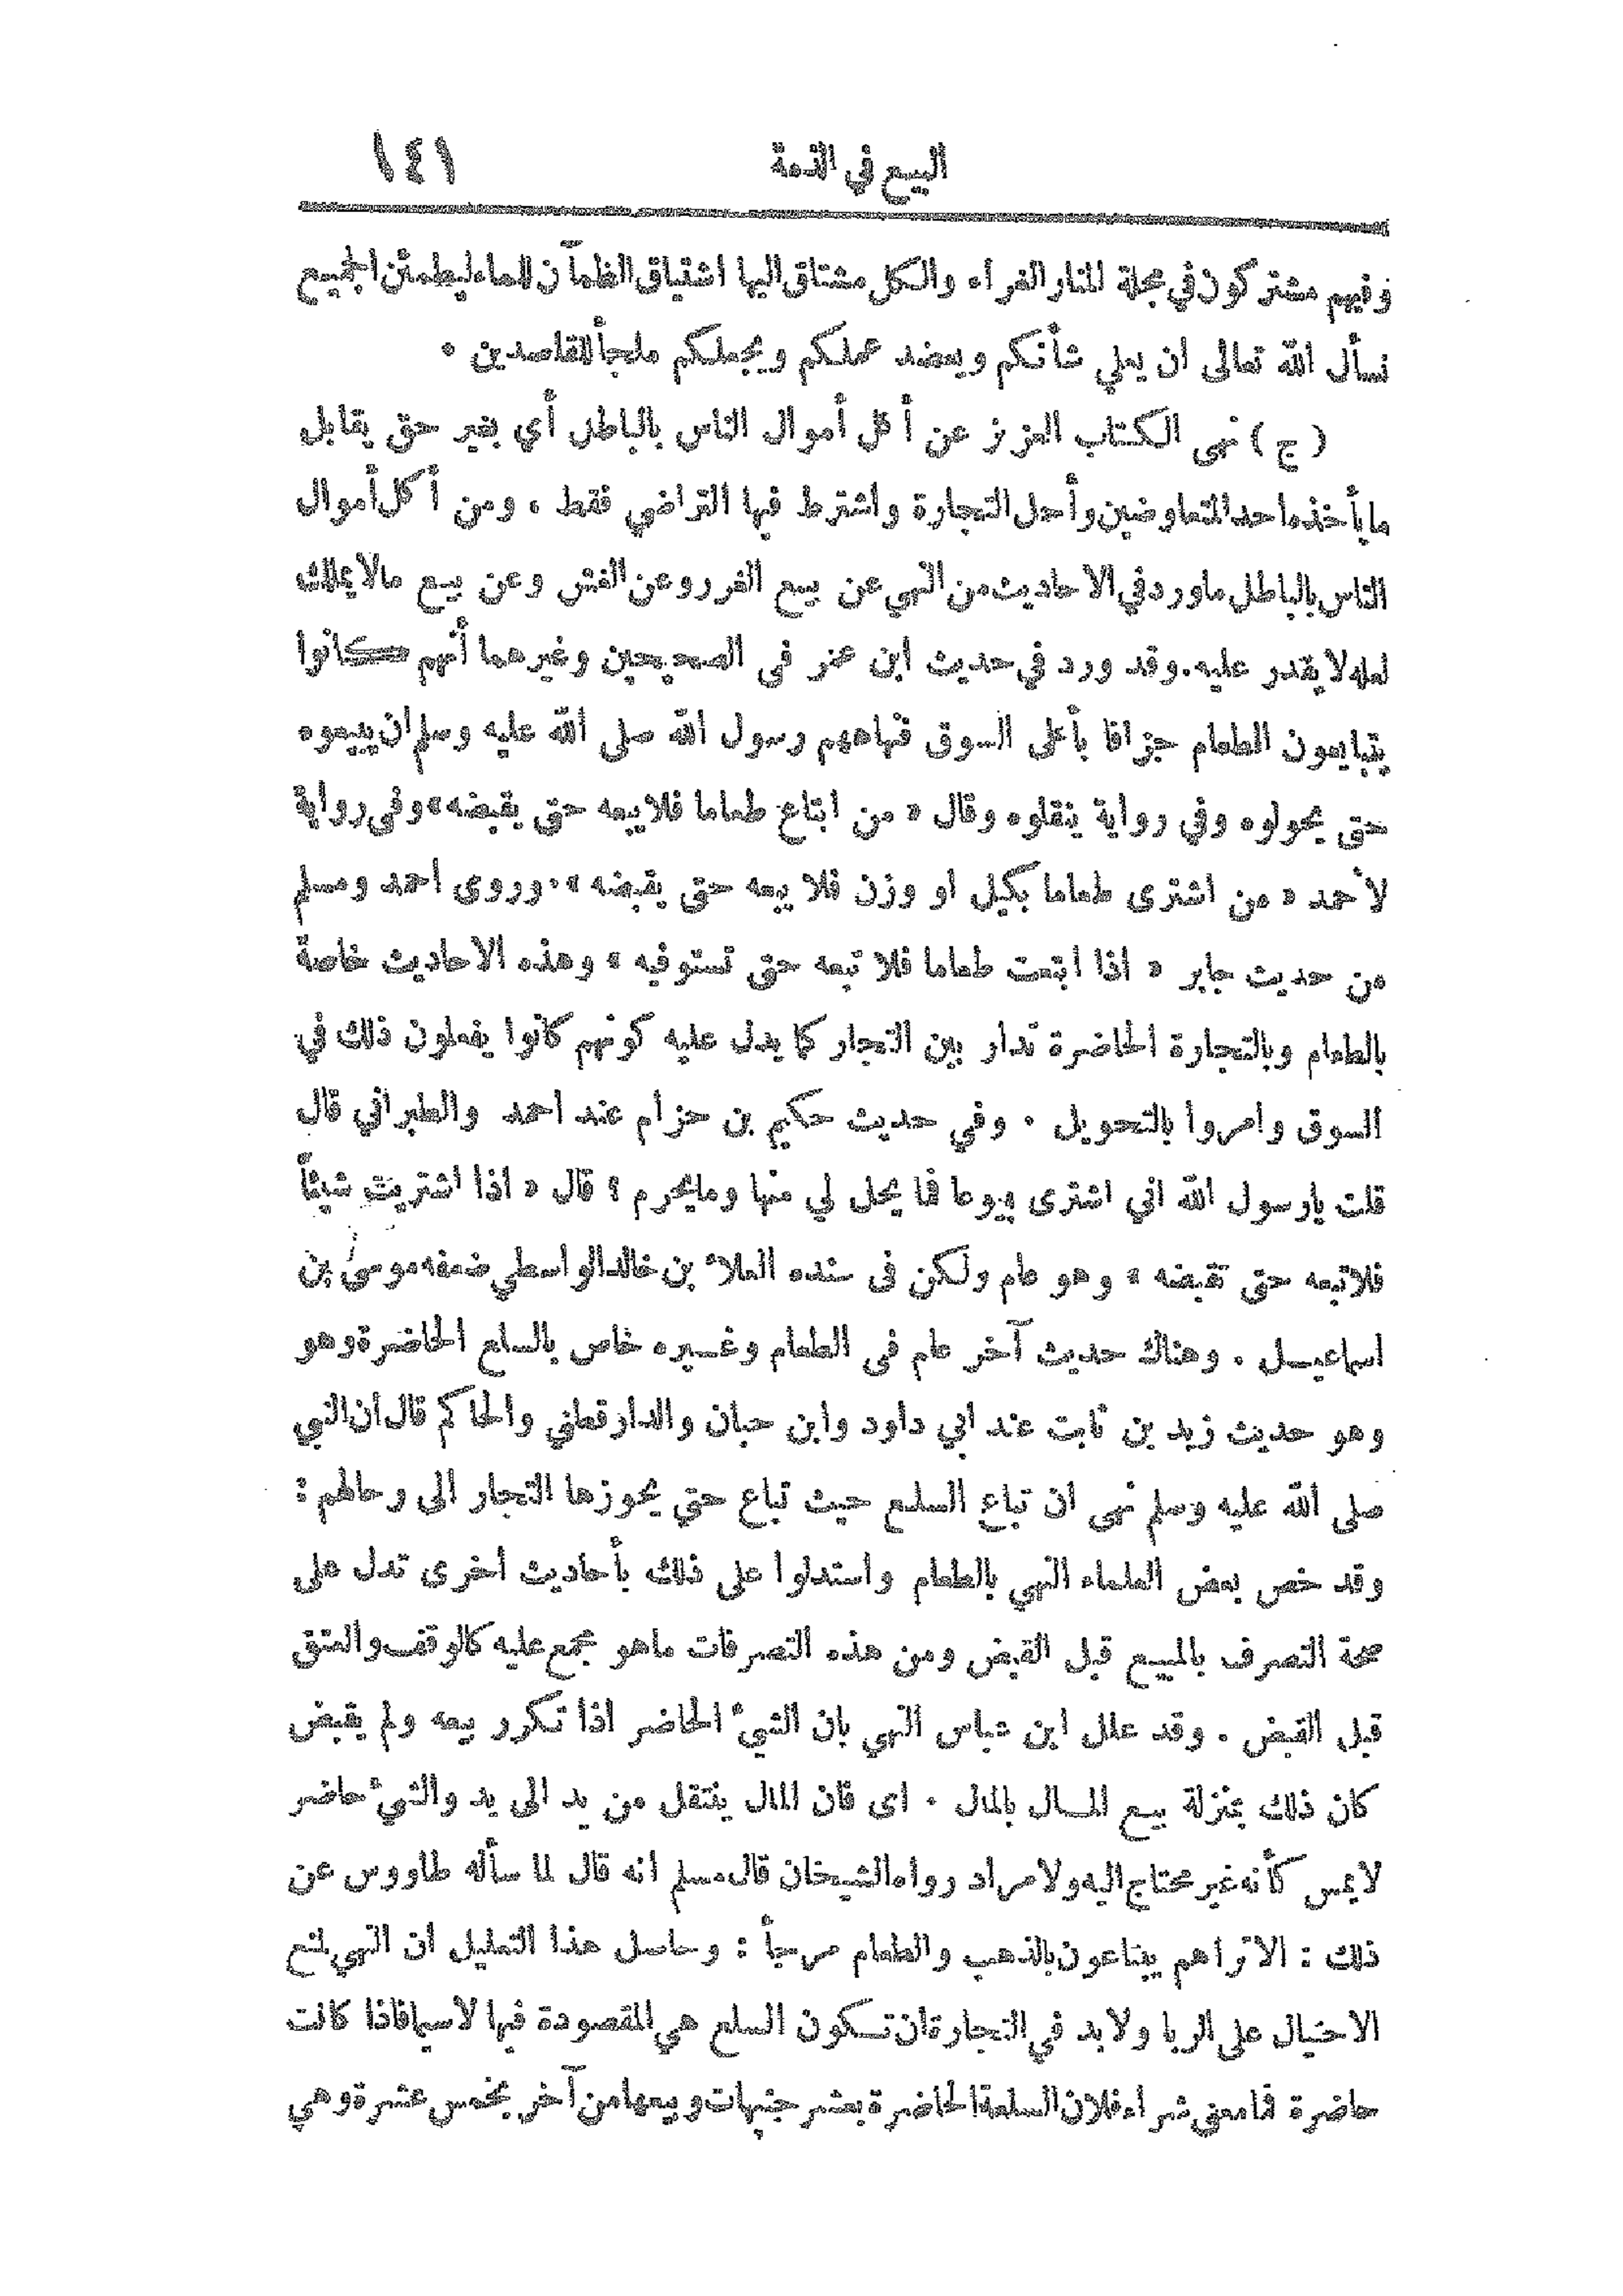 البيع في الذمة ١٤١
وفيهم مشتركون في مجلة المنار الغراء والكل مشتاق اليها اشتياق الظمآن للماء ليطمئن الجميع
نسأل الله تعالى ان يعلي شأنكم ويعضد عملكم ويجعلكم ملجأ للقاصدين .
( ج ) نهى الكتاب العزيز عن أكل أموال الناس بالباطل أي بغير حق يقابل
ما يأخذه احد المتعاوضين وأحل التجارة واشترط فيها التراضي فقط ، ومن أكل أموال
الناس بالباطل ماورد في الاحاديث من النهي عن بيع الغرر وعن الغش وعن بيع مالا يملك
لعله لا يقدر عليه. وقد ورد في حديث ابن عمر في الصحيحين وغيرهما أنهم كانوا
يتبايعون الطعام جزافا بأعلى السوق فنهاهم رسول الله صلى الله عليه وسلم ان يبيعوه
حتى يحولوه وفي رواية ينقلوه وقال « من ابتاع طعاما فلا يبعه حتى يقبضه » وفي رواية
لأحمد « من اشترى طعاما بكيل او وزن فلا يبعه حتى يقبضه » . وروى احمد ومسلم
من حديث جابر « اذا ابتعت طعاما فلا تبعه حتى تستوفيه » وهذه الاحاديث خاصة
بالطعام وبالتجارة الحاضرة تدار بين التجار كما يدل عليه كونهم كانوا يفعلون ذلك في
السوق وأمروا بالتحويل . وفي حديث حكيم بن حزام عند احمد والطبراني قال
قلت يارسول الله اني اشترى بيوعا فما يحل لي منها وما يحرم ؟ قال « اذا اشتريت شيئاً
فلا تبعه حتى تقبضه » وهو عام ولكن في سنده العلاء بن خالد الواسطي ضعفه موسى بن
اسماعيل . وهناك حديث آخر عام في الطعام وغيره خاص بالسلع الحاضرة وهو
وهو حديث زيد بن ثابت عند ابي داود وابن حبان والدارقطني والحاكم قال ان النبي
صلى الله عليه وسلم نهى ان تباع السلع حيث تباع حتى يحوزها التجار الى رحالهم :
وقد خص بعض العلماء النهي بالطعام واستدلوا على ذلك بأحاديث أخرى تدل على
صحة التصرف بالمبيع قبل القبض ومن هذه التصرفات ماهو مجمع عليه كالوقف والعتق
قبل القبض . وقد علل ابن عباس النهي بان الشيء الحاضر اذا تكرر بيعه ولم يقبض
كان ذلك بمنزلة بيع المال بالمال . اى فان المال ينتقل من يد الى يد والشيء حاضر
لا يمس كأنه غير محتاج اليه ولا مراد رواه الشيخان قال مسلم انه قال لما سأله طاووس عن
ذلك : الا تراهم يبتاعون بالذهب والطعام مرجأ : وحاصل هذا التعليل ان النهي لمنع
الاحتيال على الربا ولا بد في التجارة ان تكون السلع هي المقصودة فيها لاسيما فاذا كانت
حاضرة فما معنى شراء فلان السلعة الحاضرة بعشر جنيهات وبيعها من آخر بخمس عشرة وهي